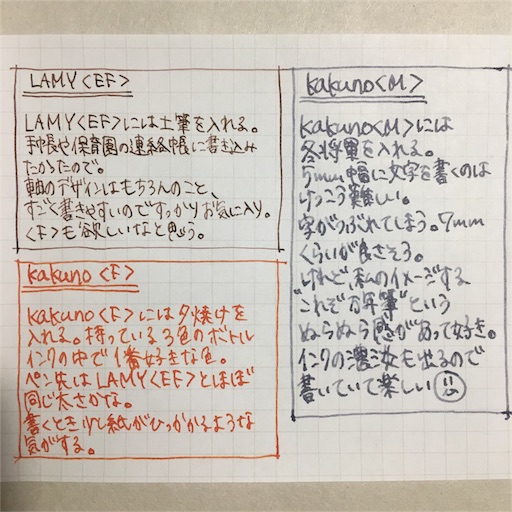 LAMY<EF>
LAMY<EF>には土筆を入れる。
手帳や保育園の連絡帳に書き込み
たかったので。
軸のデザインはもちろんのこと、
すごく書きやすいのですっかりお気に入り。
<F>も欲しいなと思う。
kakuno<F>
kakuno<F>には夕焼けを
入れる。持っている3色のボトル
インクの中で1番好きな色。
ペン先はLAMY<EF>とほぼ
同じ太さかな。
書くとき少し紙がひっかかるような
気がする。
kakuno<M>
kakuno<M>には
冬将軍を入れる。
5mm幅に文字を書くのは
けっこう難しい。
字がつぶれてしまう。7mm
くらいが良さそう。
けれど、私のイメージする
"これぞ万年筆"という
ぬらぬら感があって好き。
インクの濃淡も出るので
書いていて楽しい